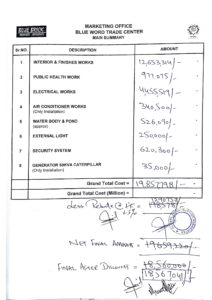 BLUE BRICK
MARKETING OFFICE
BLUE WORD TRADE CENTER
MAIN SUMMARY
Sr No. DESCRIPTION AMOUNT
1 INTERIOR & FINISHES WORKS 12,653,314/-
2 PUBLIC HEALTH WORK 977,075/-
3 ELECTRICAL WORKS 4,455,519/-
4 AIR CONDITIONER WORKS 340,500/-
(Only Installation)
5 WATER BODY & POND 526,090/-
(approx)
6 EXTERNAL LIGHT 250,000/-
7 SECURITY SYSTEM 620,300/-
8 GENERATOR 50KVA CATERPILLAR 35,000/-
(Only Installation)
Grand Total Cost = 19,857,798/-
Grand Total Cost (Million) = -
Less Rebate @
Net Final Amount =
Final After Discount = 18,560,000/-